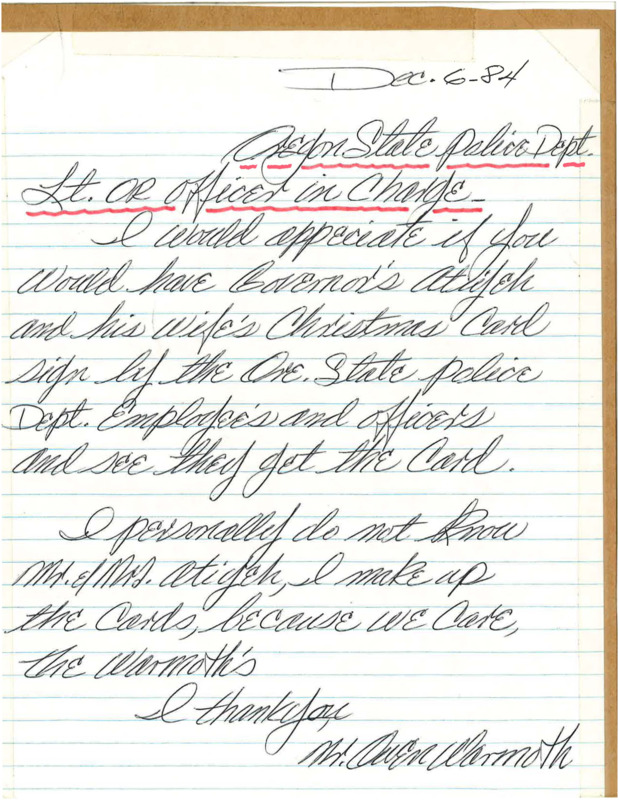 Dec. 6-84
Oregon State Police Dept.
Lt. OR officer in Charge-
I would appeciate if you
would have Governor's Atiyeh
and his wife's Christmas Card
sign by the Ore. State police
Dept. Employee's and officers
and see they get the Card.
I personally do not know
Mr. & Mrs. Atiyeh, I make up
the Cards, because we Care,
the Warmoth's
I thank you,
Mr. Owen Warmoth